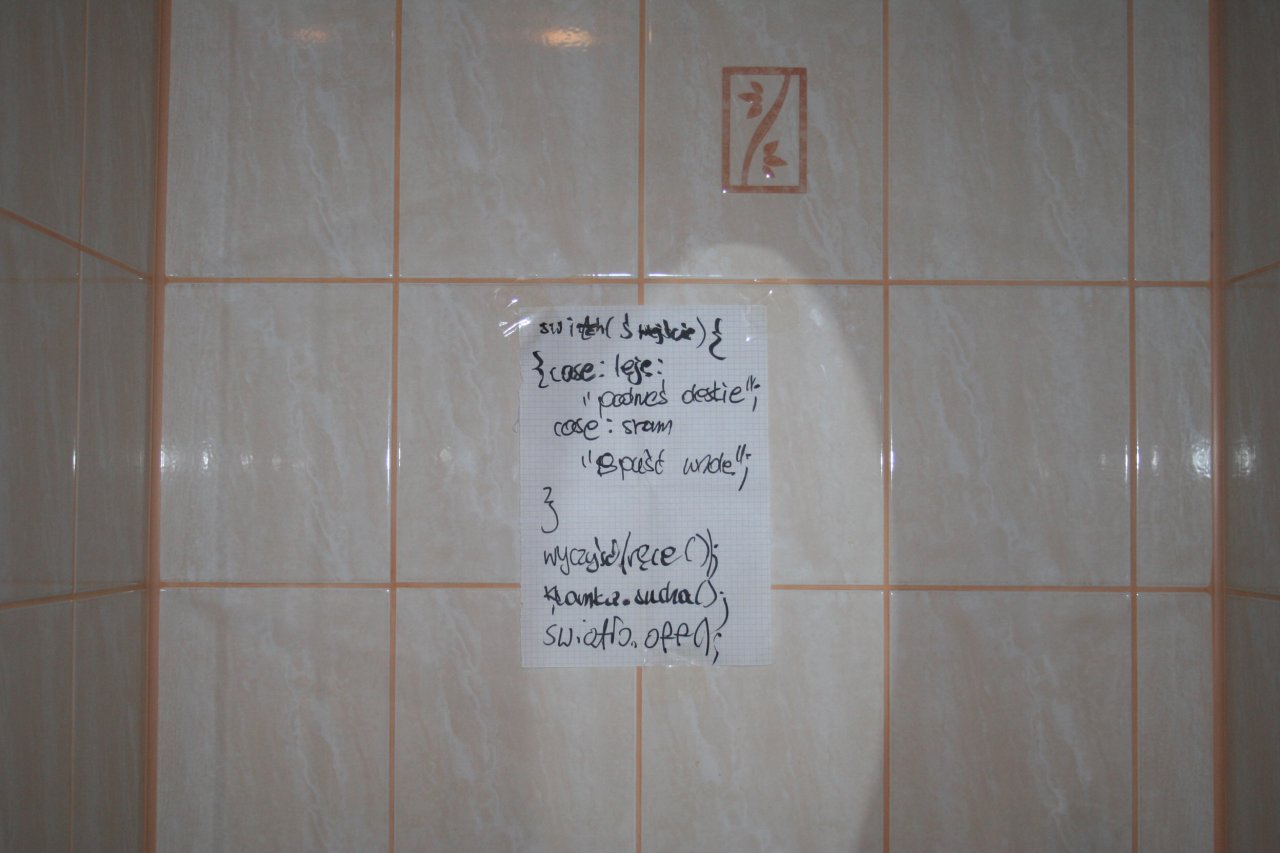 switch($wejscie){
{case: leje:
"podnieś deskie";
case: sram
"spuść wode";
}
wyczyść/ręce();
klamka.sucha();
światło.off();